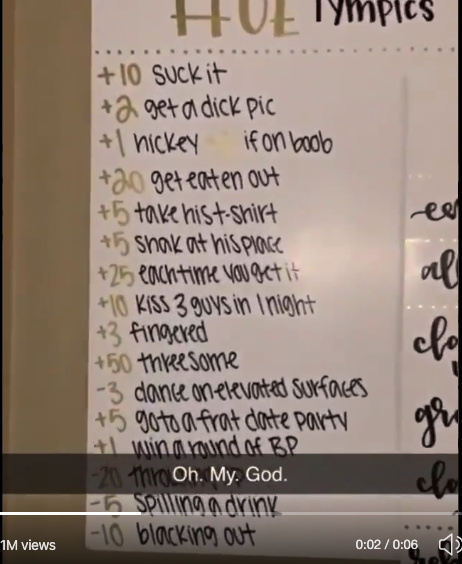 HOE lympics
+10 suck it
+2 get a dick pic
+1 hickey if on boob
+20 get eaten out
+5 take his t-shirt
+5 shak at his place
+25 each time you get it
+10 kiss 3 guys in 1 night
+3 fingered
+50 threesome
-3 dance on elevated surfaces
+5 go to a frat date party
+1 win a round of BP
-20
Oh. My. God.
-5 spilling a drink
-10 blacking out
1M views 0:02 / 0:06